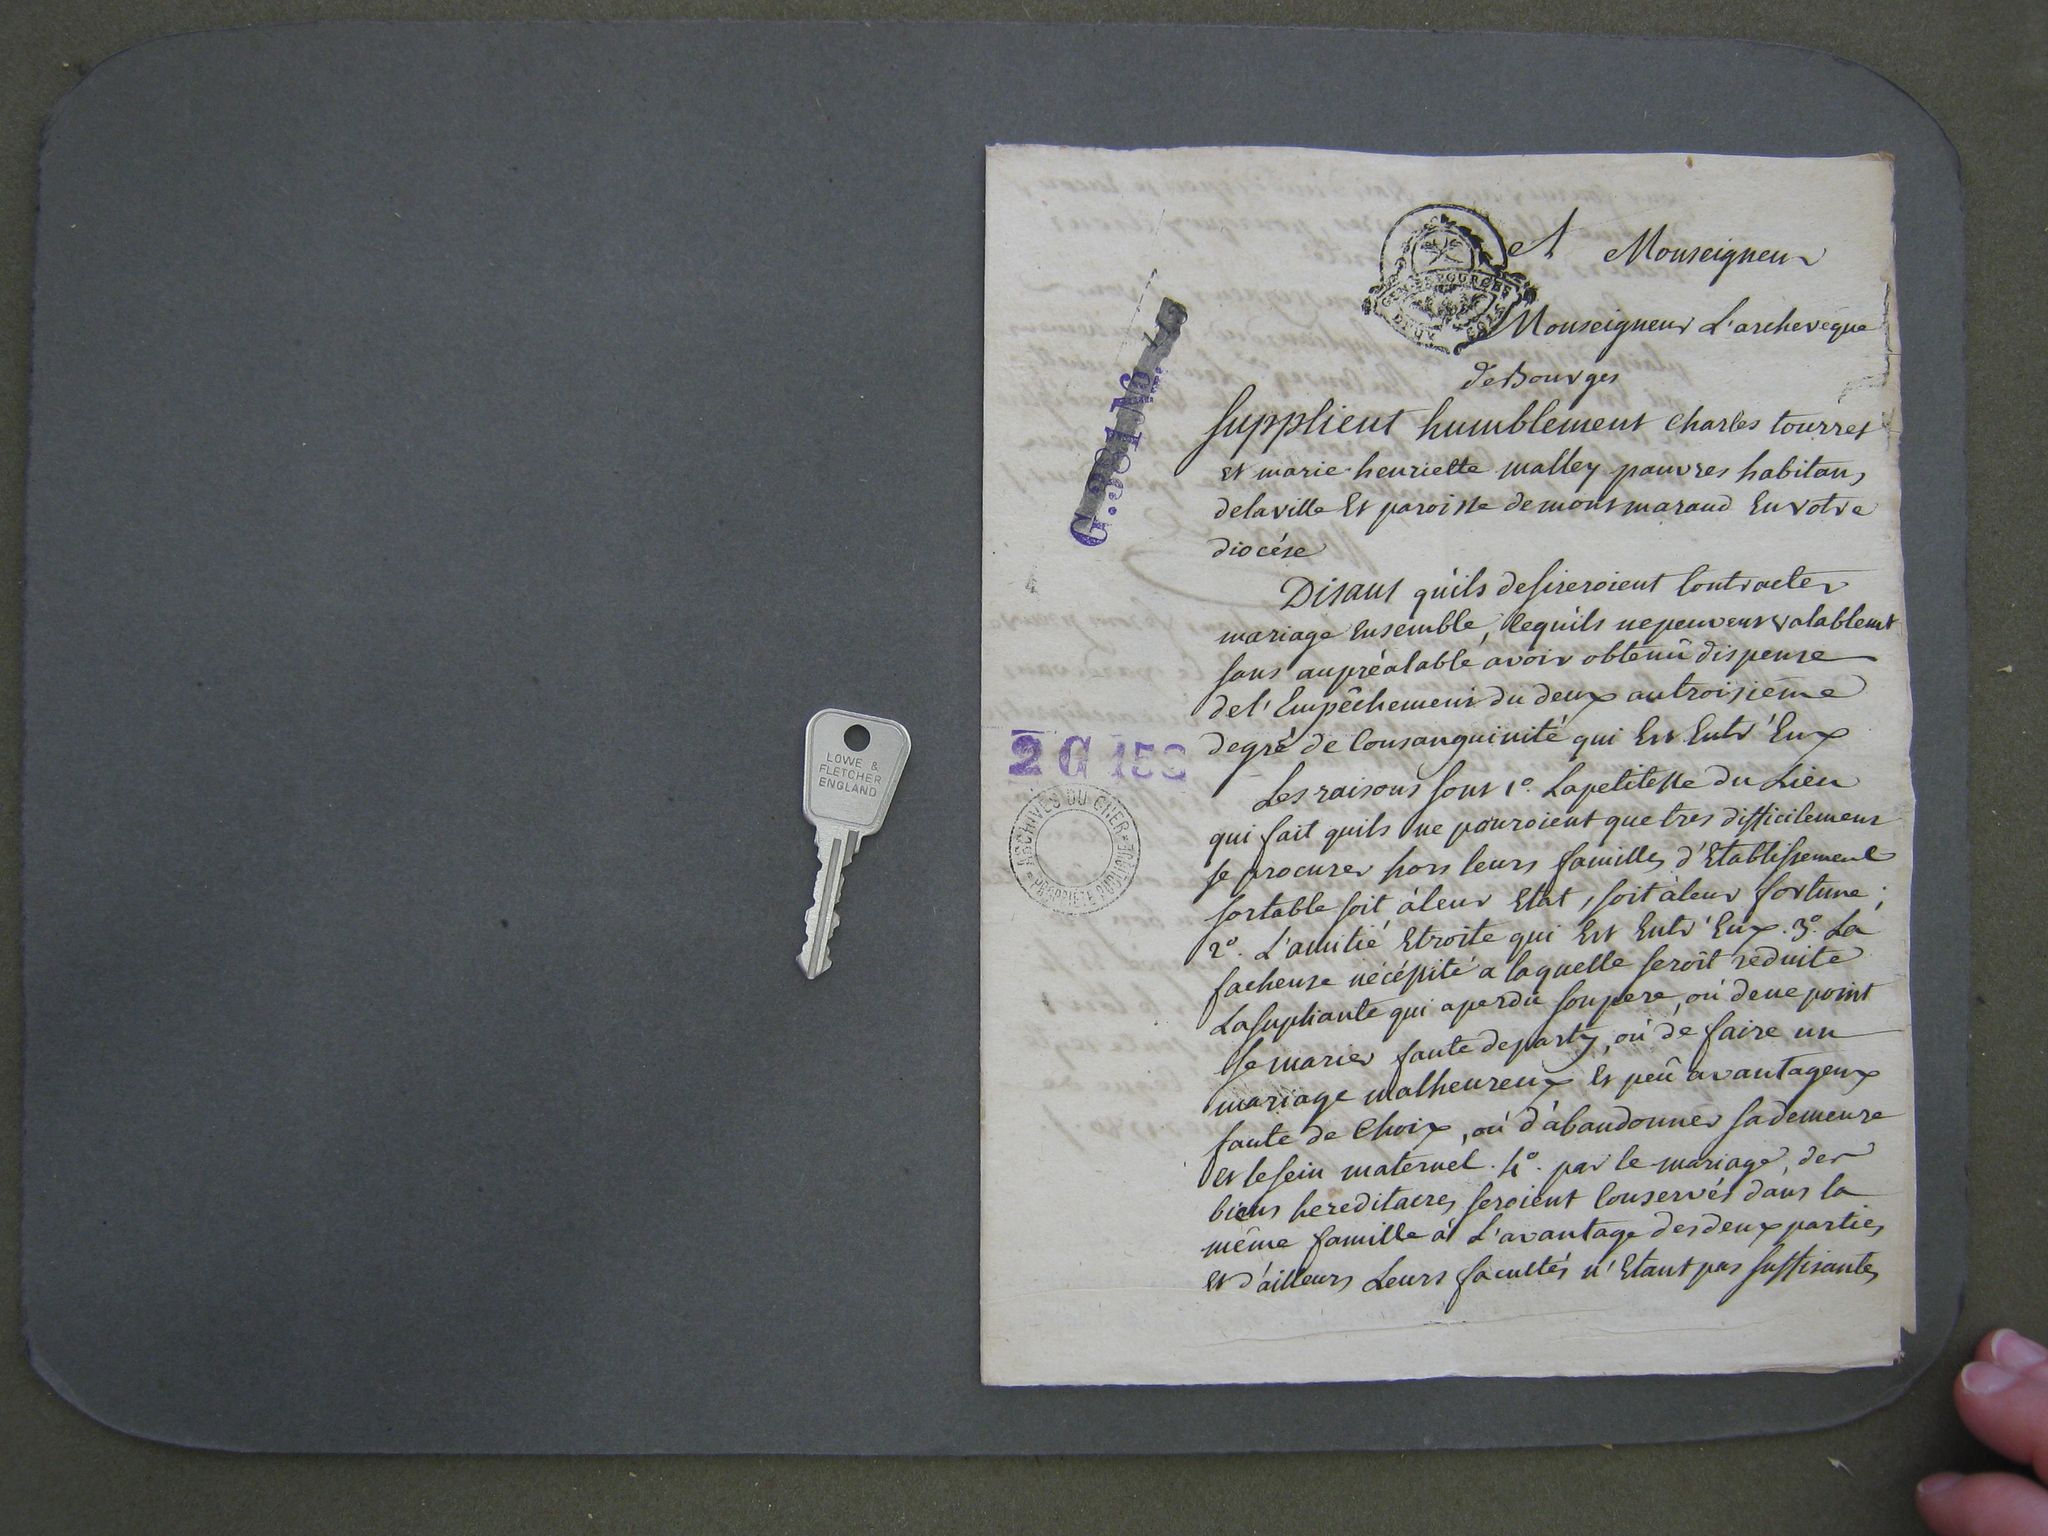 A Monseigneur
GEN. DE BOURGES
DEUX SOLS
Monseigneur L'archevêque
de Bourges
Supplient humblement Charles tourret
et marie henriette malley pauvres habitans
de la ville Et paroisse de montmaraud En votre
diocése
Disant qu'ils desireroient Contracter
mariage Ensemble, Ce qu'ils ne peuvent valablemt
sans aupréalable avoir obtenû dispense
de l'Empêchement du deux au troisiéme
degré de Consanguinité qui Est Entr'Eux
Les raisons sont 1º. La petitesse du Lieu
qui fait quils ne pouroient que tres difficilement
se procurer hors leurs familles d'Etablissement
sortable soit à leur Etat, soit à leur fortune;
2º. L'amitié Etroite qui Est Entr'Eux. 3º. La
facheuse nécéssité a laquelle seroit réduite
La supliante qui a perdû son pere, où de ne point
se marier faute de party, où de faire un
mariage malheureux Et peû avantageux
faute de Choix, où d'abandonner sa demeure
et le sein maternel. 4º. par le mariage, des
biens hereditaires seroient Conservés dans la
même famille à L'avantage des deux parties
et d'ailleurs Leurs facultés n'Etant pas suffisantes
2 G 158
ARCHIVES DU CHER
PROPRIÉTÉ PUBLIQUE
LOWE &
FLETCHER
ENGLAND